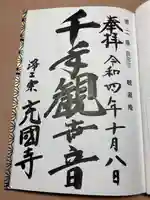 第二番
奉拝 令和四年十月八日
千手観世音
浄土宗 充國寺